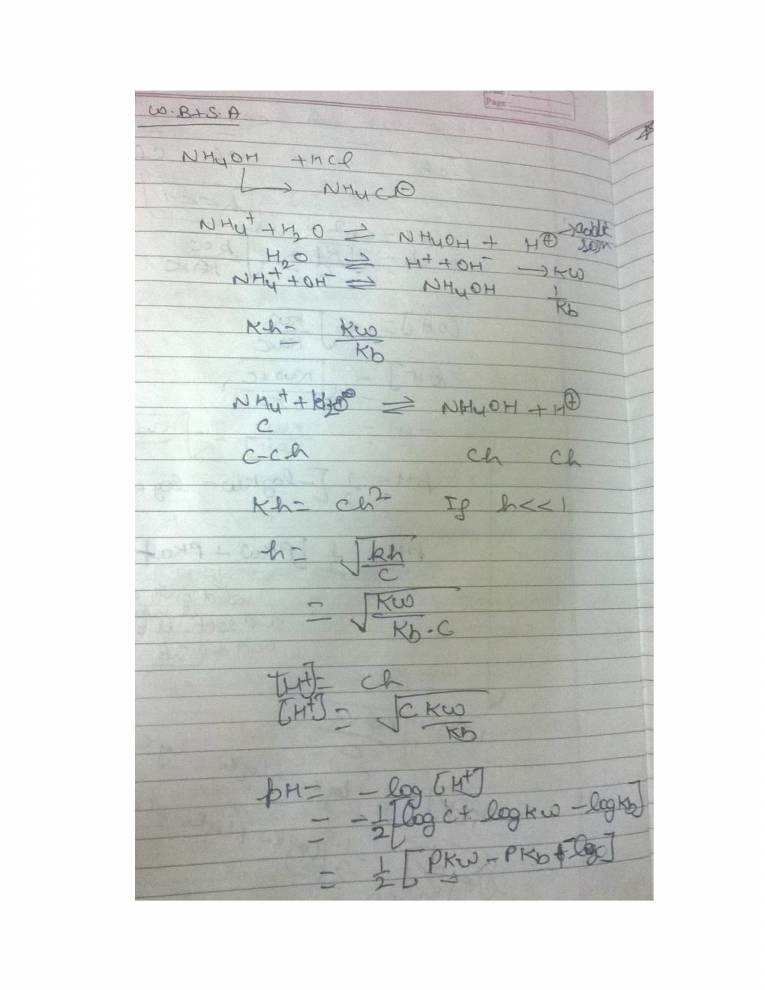 Page:
W.B+S.A
NH4OH + HCl
→ NH4Cl⊖
NH4+ + H2O ⇌ NH4OH + H⊕ →
H2O ⇌ H+ + OH- → Kw
NH4+ + OH- ⇌ NH4OH 1/Kb
Kh = Kw/Kb
NH4+ + ⇌ NH4OH + H⊕
C
C-Ch Ch Ch
Kh = Ch² If h<<1
h = √(Kh/C)
= √(Kw/Kb·C)
[H+] = Ch
[H+] = √(C Kw/Kb)
pH = -log [H+]
= -1/2 [log C + log Kw - log Kb]
= 1/2 [PKw - PKb - logc]